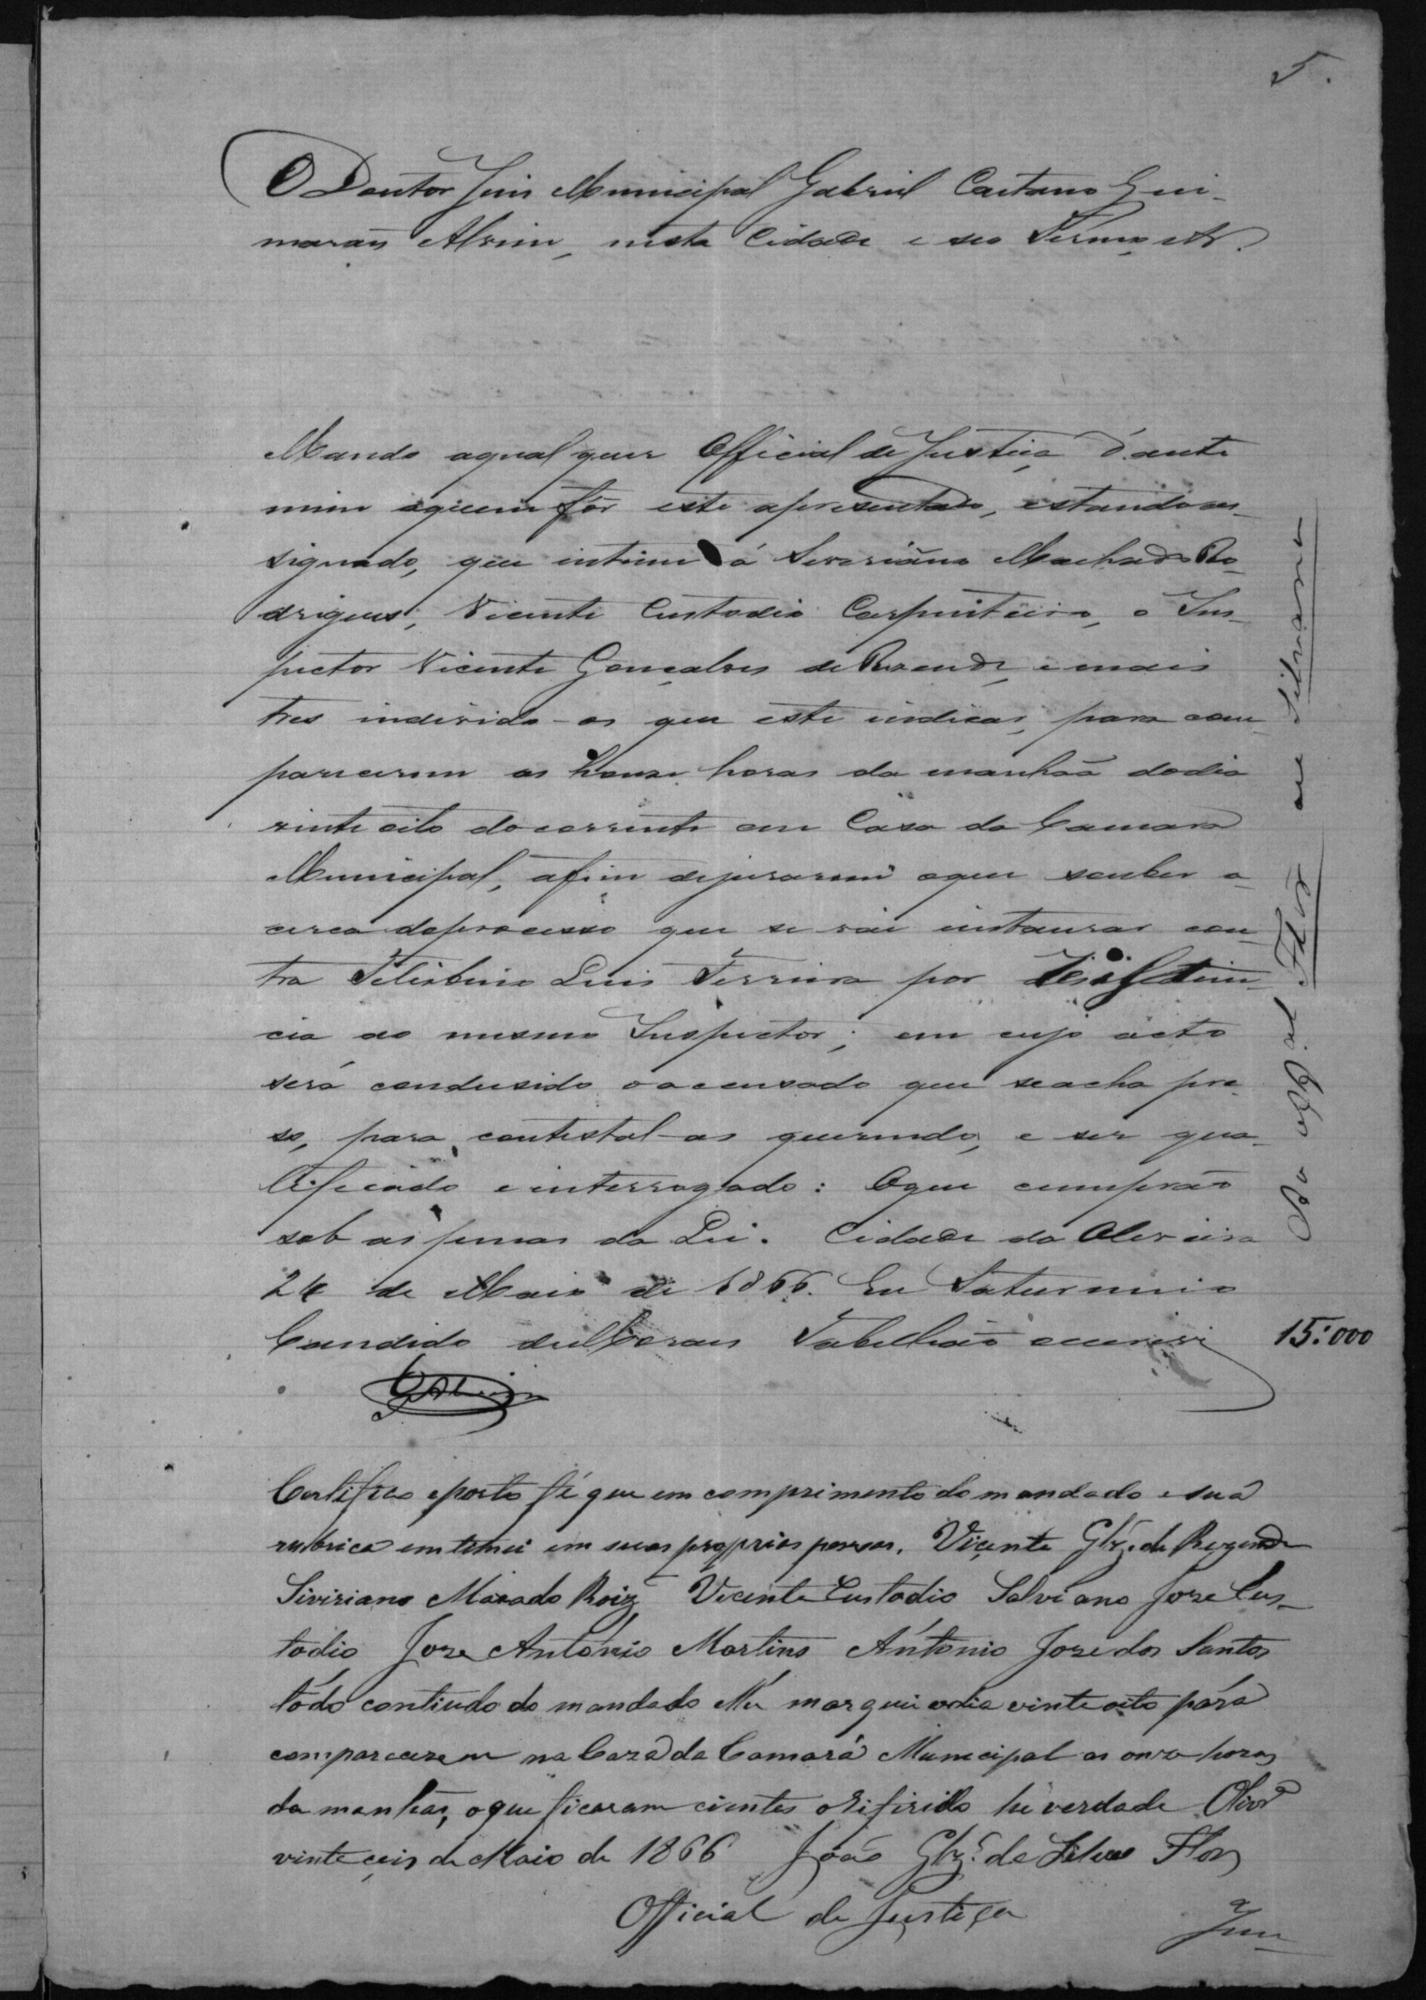 5.
O Doutor Juis Municipal Gabriel Caetano Gui-
marães Alvim, nesta Cidade e seo Termo, etc.
Mando aqual quer Official de Justiça d'ante
mim aquem fôr este apresentado, estando as-
signado, que intime á Severiano Machado Ro-
drigues, Vicente Custodio Carpinteiro, o Ins-
pector Vicente Gonçalves de Rezende, e mais
tres individo-os que este indicar, para com-
parecerem as honze horas da manhãa do dia
vinte oito do corrente em Casa da Camara
Municipal, afim dejurarem oque souber a-
cerca doprocesso que se vai instaurar con-
tra Felisbino Luis Ferreira por
cia ao mesmo Inspector; em cujo acto
será condusido o accusado que seacha pre-
so, para contestal-as querendo, e ser qua-
lificado e interrogado: Oque cumprão
sob as penas da Lei. Cidade da Oliveira
24 de Maio de 1866. Eu Saturnino
Candido de Tabellião escrevi
GAlvim
Certifico eporto fé que em comprimento do mandado e sua
rubrica emtimei em suas proprias pessoas, Vicente Glz. de Rezende
Siviriano Maxado Roiz Vicente Custodio Salviano Jose Cus-
todio Jose Antonio Martins Antonio Jose dos Santos
todo contiudo do mandado lhe marquei odia vinte oito para
comparecerem na Caza da Camará Municipal as onze horas
da manhãa, oque ficaram cientes orifirido hé verdade Olivrª
vinte ceis de Maio de 1866 João Glz. da Silva Flor
Official de Justiça
Jun
Ao Off.al Flor ou Silvano
15:000